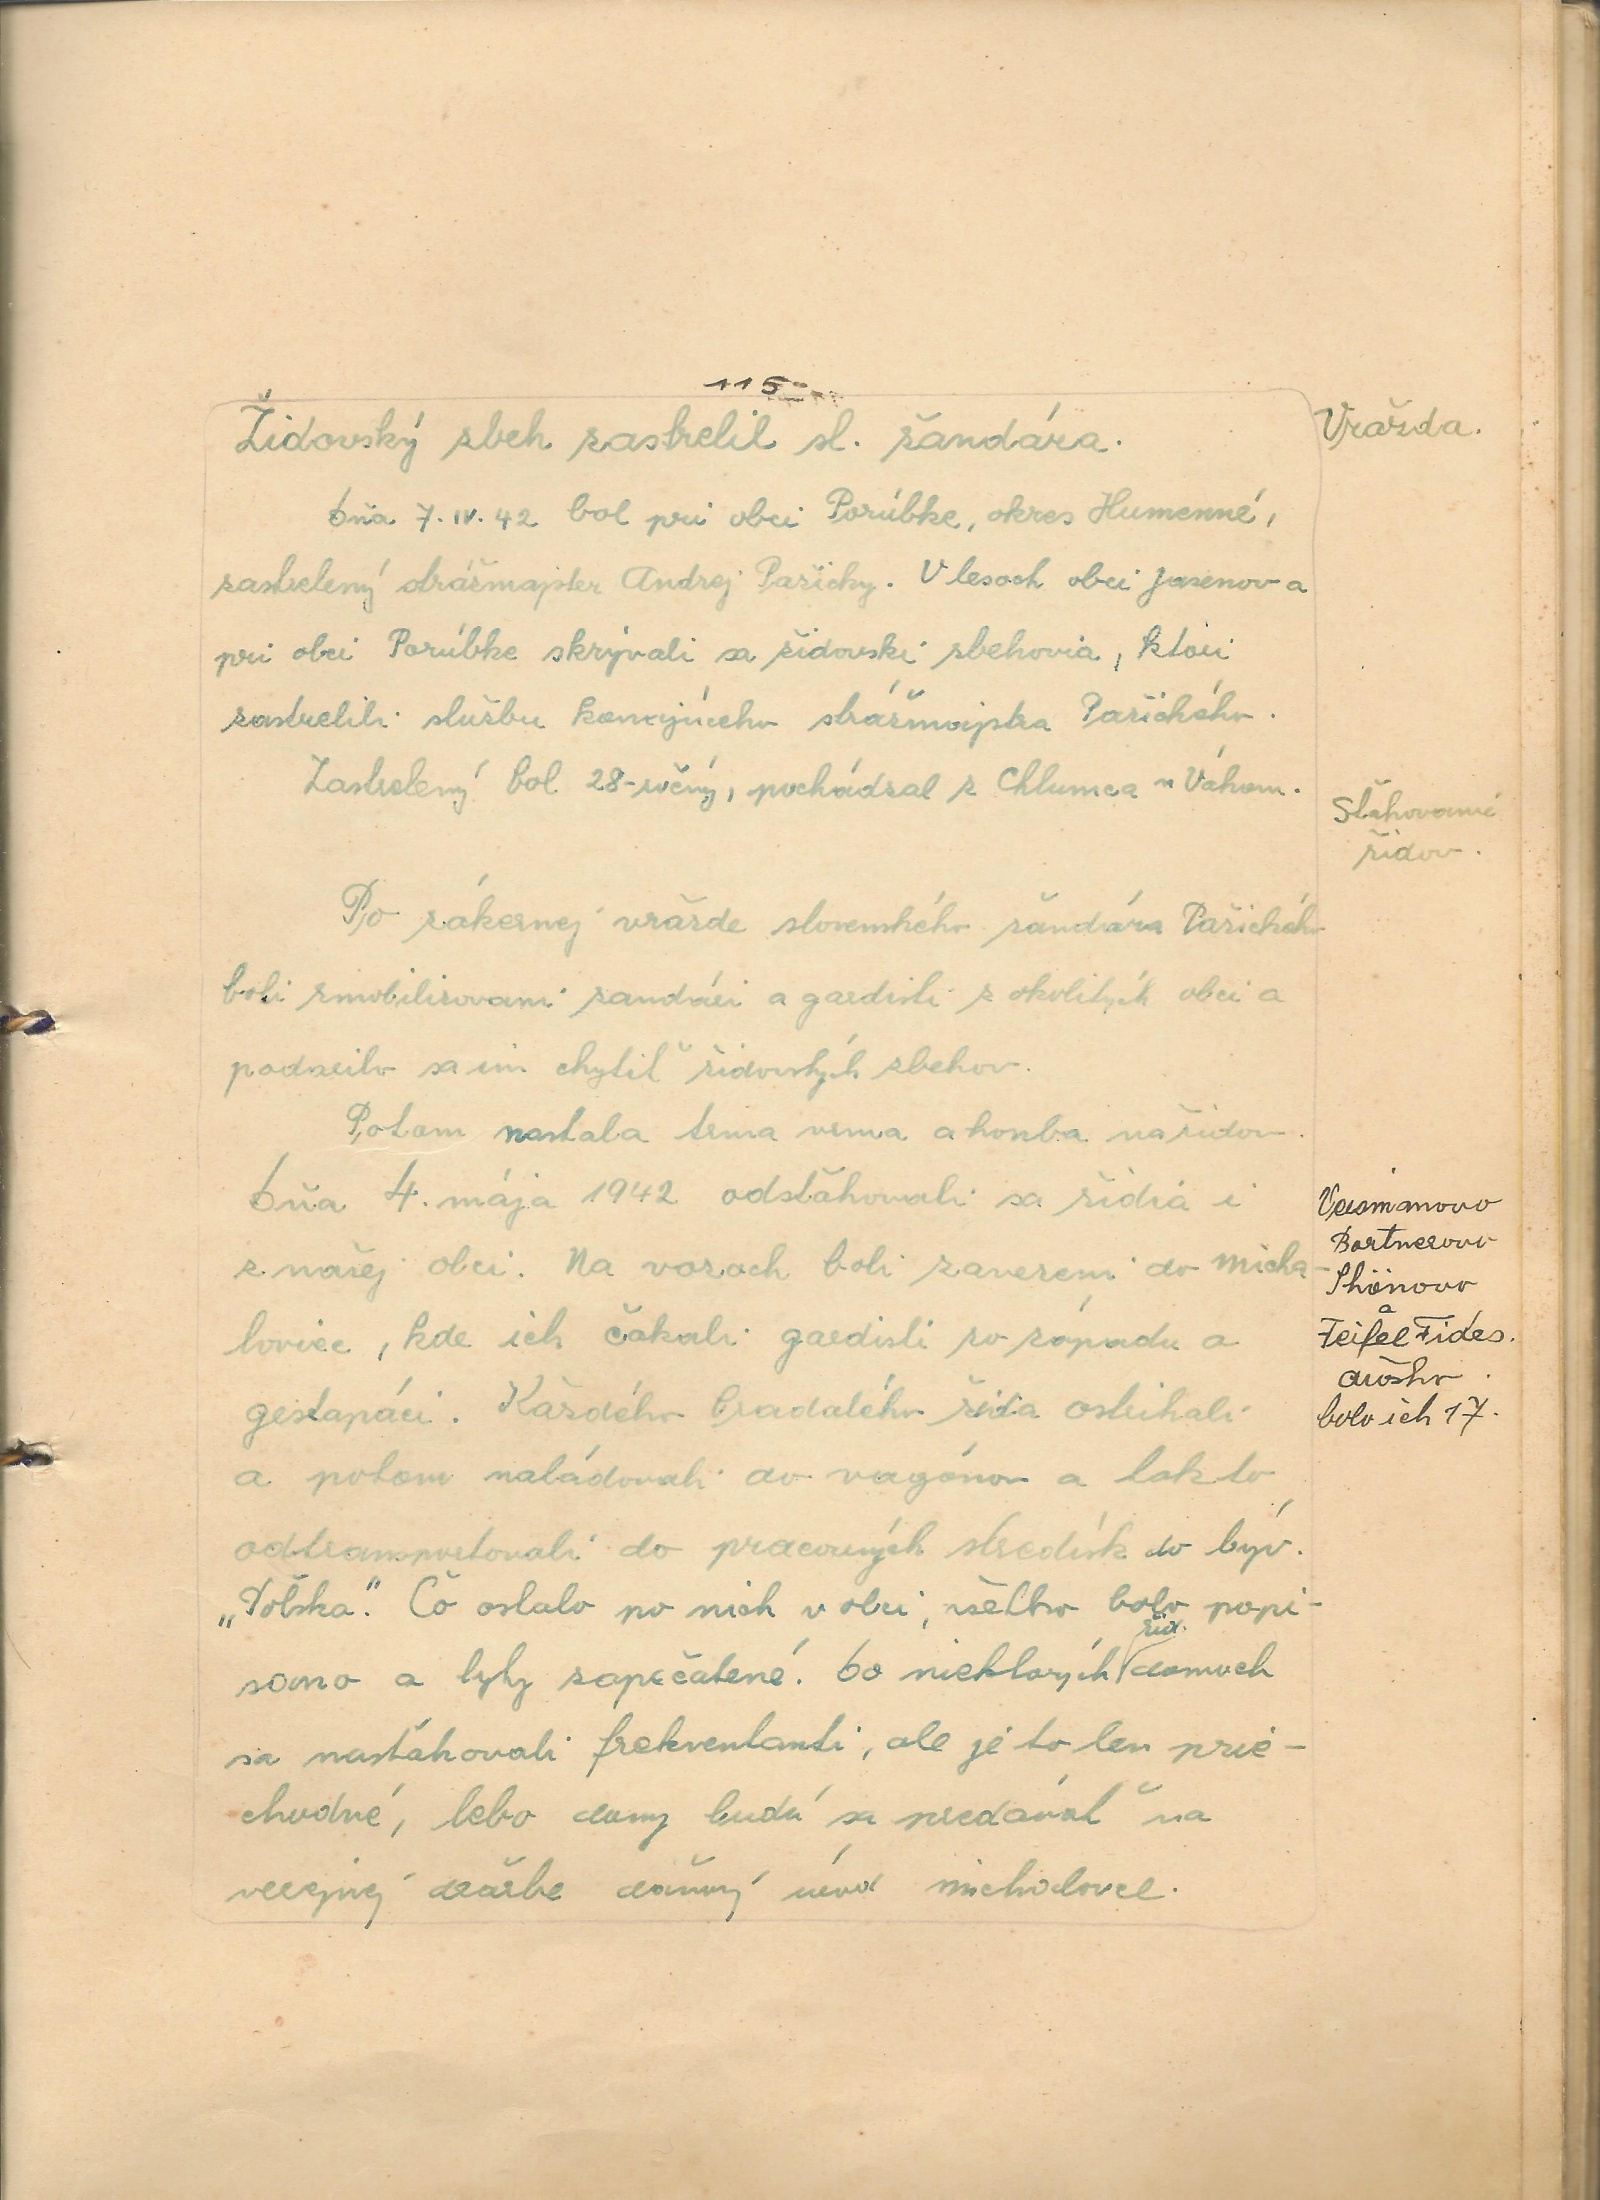 115
Židovský zbeh zastrelil sl. žandára.
Vražda.
Dňa 7. IV. 42 bol pri obci Porúbke, okres Humenné,
zastrelený strážmajster Andrej Pažický. V lesoch obci Jasenov a
pri obci Porúbke skrývali sa židovskí zbehovia, ktorí
zastrelili službu konajúceho strážmajstra Pažického.
Zastrelený bol 28-ročný, pochádzal z Chlumca n Váhom.
Sťahovanie
židov.
Po zákernej vražde slovenského žandára Pažického
boli zmobilizovaní žandári a gardisti z okolitých obcí a
podarilo sa im chytiť židovských zbehov.
Potom nastala tma vrma a honba na židov.
Dňa 4. mája 1942 odsťahovali sa židia i
z našej obci. Na vozoch boli zavezení do Micha-
loviec, kde ich čakali gardisti zo západu a
gestapáci. Každého bradatého žida ostrihali
a potom naládovali do vagónov a takto
odtransportovali do pracovných stredísk do býv.
„Poľska". Čo ostalo po nich v obci, všetko bolo popí-
sano a byty zapečatené. Do niektorých žid. domoch
sa nasťahovali frekventanti, ale je to len prie-
chodné, lebo domy budú sa predávať na
verejnej dražbe daňový úrad Michalovce.
Bartnerovo
Shönovo
a
Teifel Fides.
bolo ich 17.